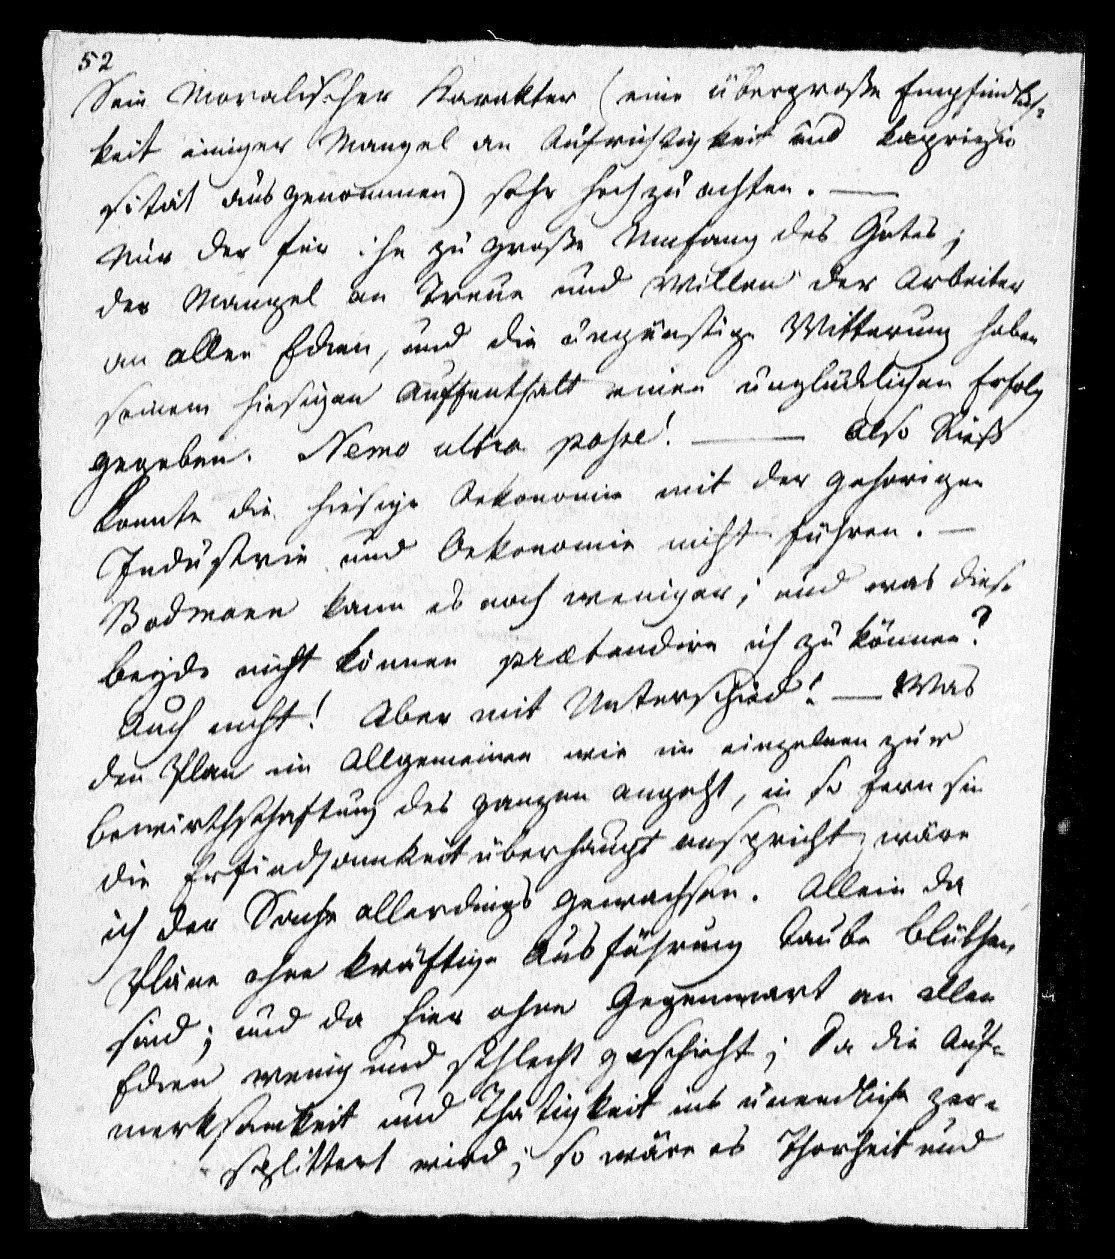 52
Sein Moralischer Karakter (eine übergroße Empfindlich-
keit einiger Mangel an Aufrichtigkeit und Kaprizio
sität ausgenommen) sehr hoch zu achten. —
Nur der für ihn zu große Umfang des Gutes;
der Mangel an Treue und Willen der Arbeiter
an allen Ecken, und die ungünstige Witterung haben
seinem hiesigen Auffenthalt einen unglücklichen Erfolg
gegeben. Nemo ultra posse! — Also Süß
konnte die hiesige Oekonomie mit der gehörigen
Industrie und Oekonomie nicht führen. —
Bodmann kann es noch weniger; und was diese
beyde nicht können prætendire ich zu können?
Auch nicht! Aber mit Unterschied! — Was
den Plan im Allgemeinen wie im einzelnen zur
bewirthschaftung des ganzen angeht, in so fern sie
die Erfindsamkeit überhaupt anspricht, wäre
ich der Sache allerdings gewachsen. Allein da
Pläne ohne kräftige Ausführung taube blüthen
sind; und da hier ohne Gegenwart an allen
Ecken wenig und schlecht geschieht; Da die Auf-
merksamkeit und Thätigkeit ins unendliche zer-
splittert wird; so wäre es Thorheit und